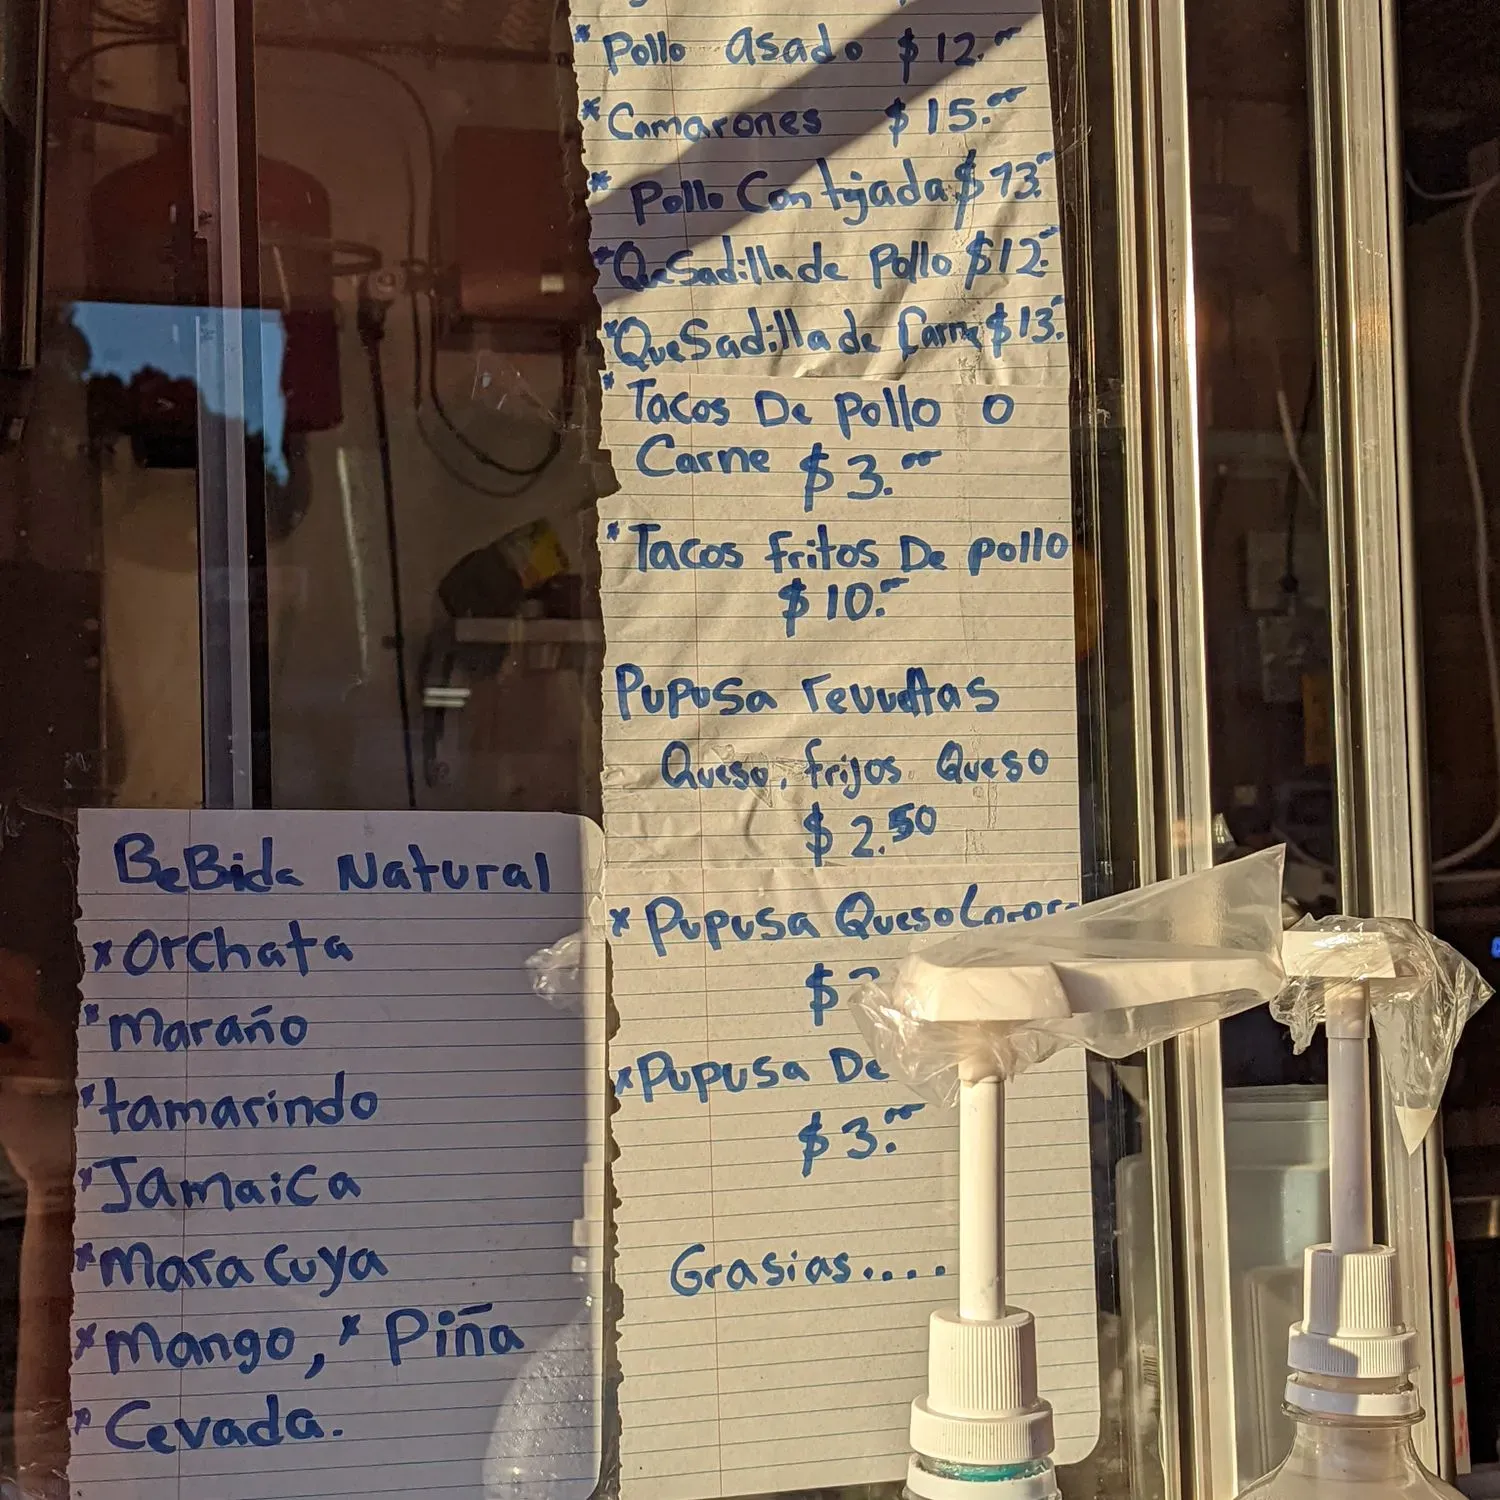 * Pollo asado $12.00
* Camarones $15.00
* Pollo Con tajada $13.00
* QueSadilla de Pollo $12.00
* QueSadilla de Carne $13.00
* Tacos De pollo o
Carne $3.00
* Tacos fritos De pollo
$10.00
Pupusa revueltas
Queso, frijos Queso
$2.50
* Pupusa Queso
$
* Pupusa De
$3.00
Grasias....
BeBida Natural
* Orchata
* maraño
* tamarindo
* Jamaica
* Maracuya
* mango, * Piña
* Cevada.